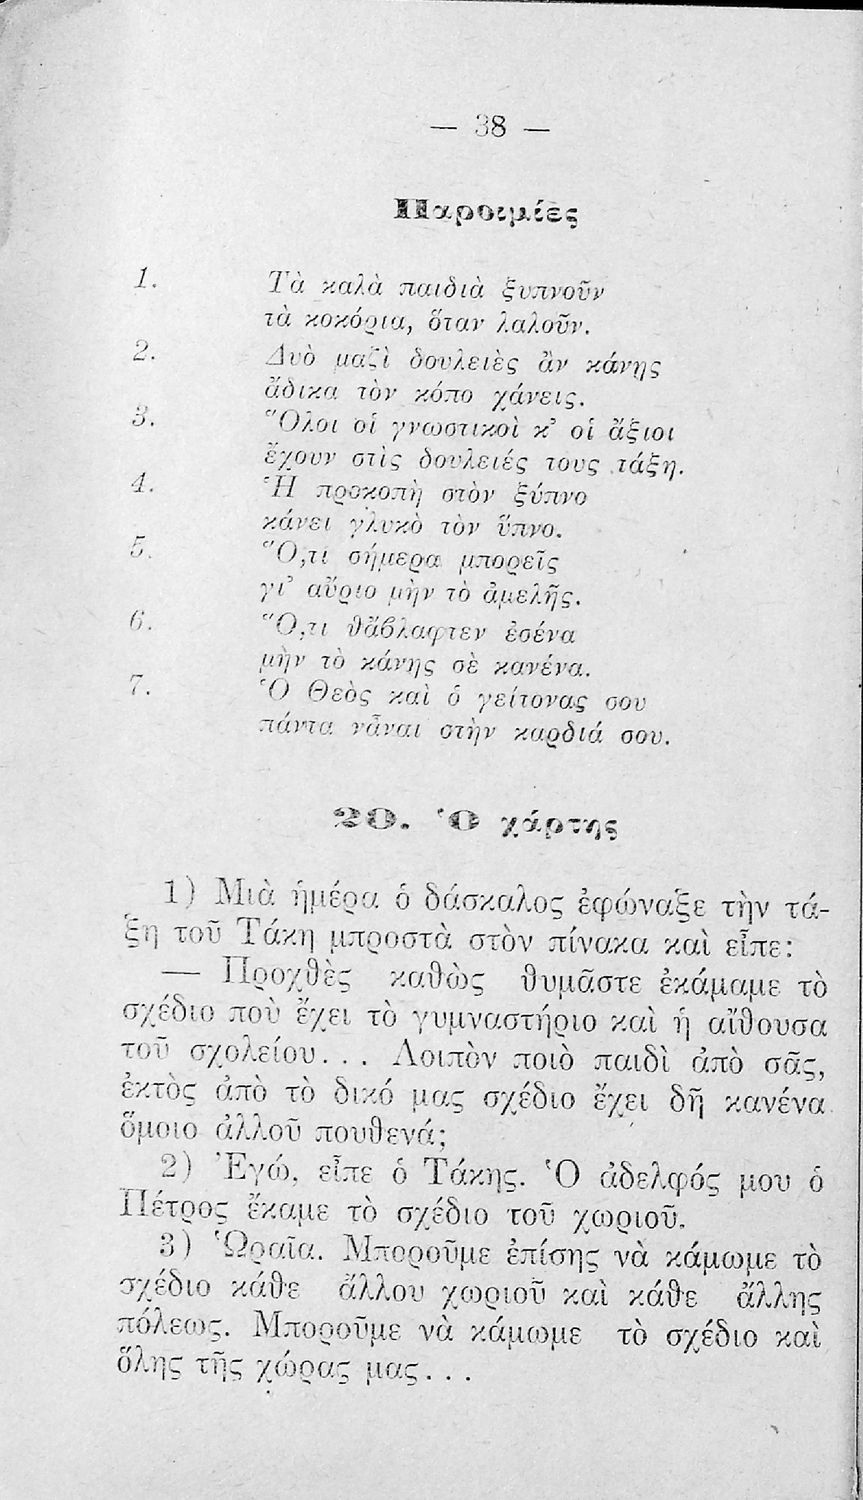 — 38 —
Παροιμίες
1. Τὰ καλὰ παιδιὰ ξυπνοῦν
τὰ κοκόρια, ὅταν λαλοῦν.
2. Δυὸ μαζὶ δουλειὲς ἂν κάνῃς
ἄδικα τὸν κόπο χάνεις.
3. Ὅλοι οἱ γνωστικοὶ κ’ οἱ ἄξιοι
ἔχουν στὶς δουλειές τους τάξη.
4. Ἡ προκοπὴ στὸν ξύπνο
κάνει γλυκὸ τὸν ὕπνο.
5. Ὅ,τι σήμερα μπορεῖς
γι’ αὔριο μὴν τὸ ἀμελῇς.
6. Ὅ,τι θἄβλαφτεν ἐσένα
μὴν τὸ κάνῃς σὲ κανένα.
7. Ὁ Θεὸς καὶ ὁ γείτονας σου
πάντα νἆναι στὴν καρδιά σου.
20. Ὁ χάρτης
1) Μιὰ ἡμέρα ὁ δάσκαλος ἐφώναξε τὴν τά-
ξη τοῦ Τάκη μπροστὰ στὸν πίνακα καὶ εἶπε:
— Προχθὲς καθὼς θυμᾶστε ἐκάμαμε τὸ
σχέδιο ποὺ ἔχει τὸ γυμναστήριο καὶ ἡ αἴθουσα
τοῦ σχολείου... Λοιπὸν ποιὸ παιδὶ ἀπὸ σᾶς,
ἐκτὸς ἀπὸ τὸ δικό μας σχέδιο ἔχει δῆ κανένα
ὅμοιο ἀλλοῦ πουθενά;
2) Ἐγώ, εἶπε ὁ Τάκης. Ὁ ἀδελφός μου ὁ
Πέτρος ἔκαμε τὸ σχέδιο τοῦ χωριοῦ.
3) Ὡραῖα. Μποροῦμε ἐπίσης νὰ κάμωμε τὸ
σχέδιο κάθε ἄλλου χωριοῦ καὶ κάθε ἄλλης
πόλεως. Μποροῦμε νὰ κάμωμε τὸ σχέδιο καὶ
ὅλης τῆς χώρας μας...